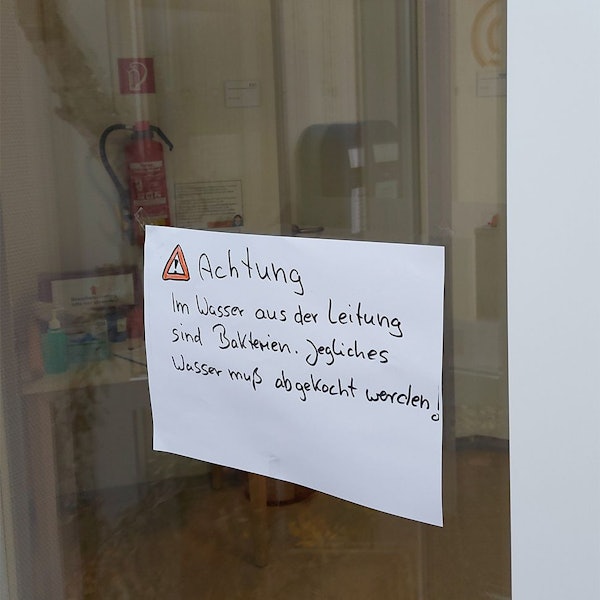 Achtung
Im Wasser aus der Leitung
sind Bakterien. Jegliches
Wasser muß abgekocht werden!